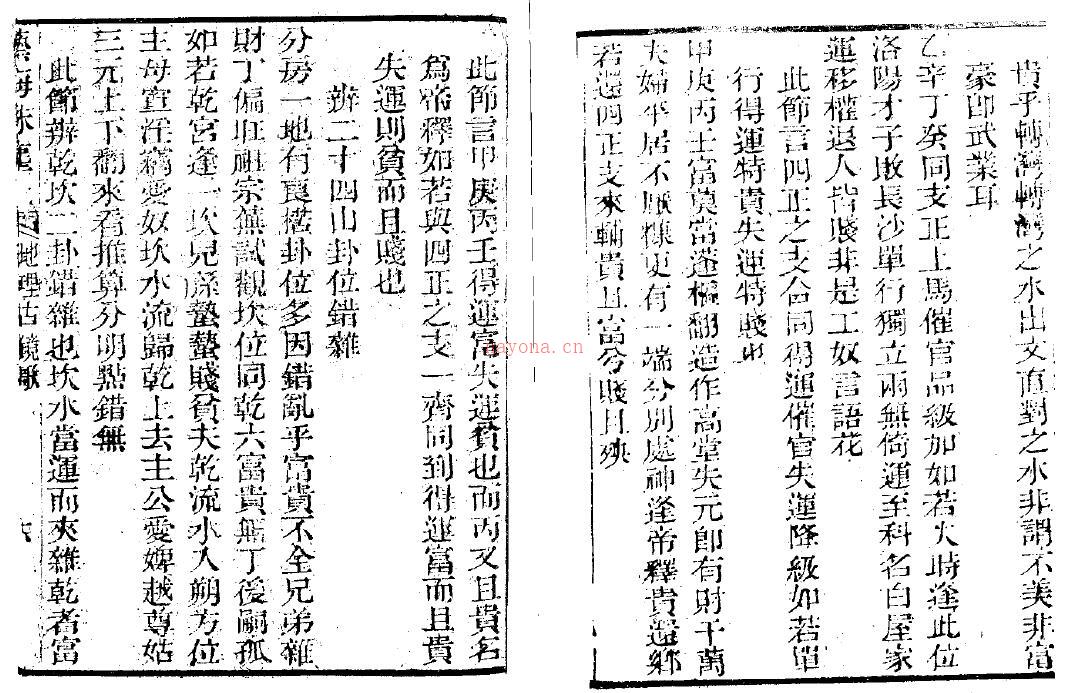 貴乎轉灣轉灣之水出支直對之水非謂不美非富
豪卽武業耳
乙辛丁癸同支正上馬催官品級加如若失時逢此位
洛陽才子敗長沙單行獨立兩無倚運至科名白屋家
運移權退人皆賤非是工奴言語花
此節言四正之支合同得運催官失運降級如若單
行得運特貴失運特賤也
甲庚丙壬富莫當蓬樞翻造作高堂失元卽有財千萬
夫婦平居不厭糠更有一端分別處神逢帝釋貴還鄉
若還四正支來輔貴且富兮賤且殃
此節言甲庚丙壬得運富失運貧也而丙又且貴名
爲帝釋如若與四正之支一齊同到得運富而且貴
失運則貧而且賤也
辨二十四山卦位錯雜
分房一地有喪揩卦位多因錯亂乎富貴不全兄弟雜
財丁偏旺祖宗蕪試觀坎位同乾六富貴無丁後嗣孤
如若乾宮逢一坎兒孫蟄蟄賤貧夫乾流水入朔方位
主母宣淫竊愛奴坎水流歸乾上去主公愛婢越尊姑
三元上下翻來看推算分明點錯無
此節辨乾坎二卦錯雜也坎水當運而夾雜乾者富
藝海珠塵 地理古鏡歌 六
nayona.cn